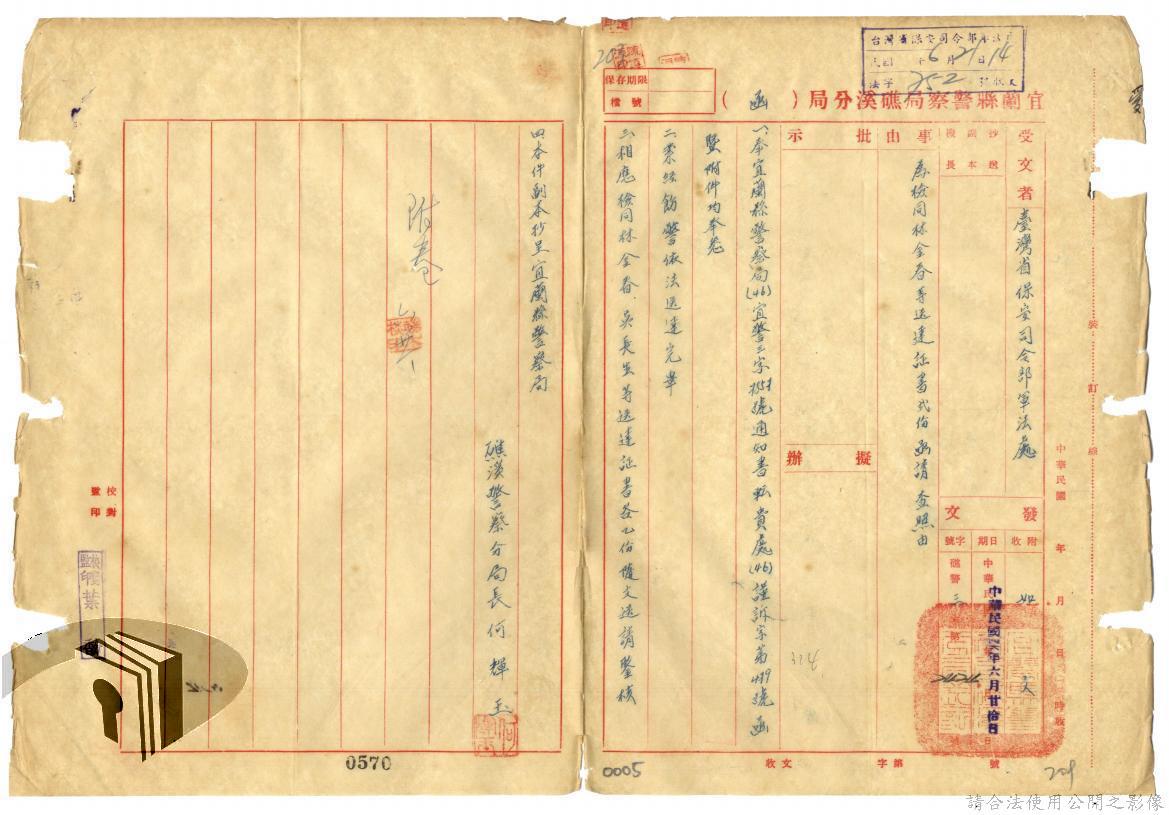 台灣省保安司令部軍法處
6月21日14
法字252號收文
宜蘭縣警察局礁溪分局(函)
保存期限
檔號
受文者
臺灣省保安司令部軍法處
抄送副本機長
事由
為檢同林金春等送達証書弍份函請查照由
批示
擬辦
發文
附收
日期
字號
如文
中華民國六月廿拾日
礁警三字第
號
中華民國 年 月 日 時收
裝訂線
一、奉宜蘭縣警察局(46)宜警三字號通知書転貴處(46)謹訴字第499號函
暨附件均奉悉
二、業經飭警依法送達完畢
三、相應檢同林金春、吳長生等送達証書各乙份隨文送請鑒核
四本件副本抄呈宜蘭縣警察局
附卷
礁溪警察分局長何輝玉
校對
監印
收文 字第 號
324
209
0005
0570
請合法使用公開之影像